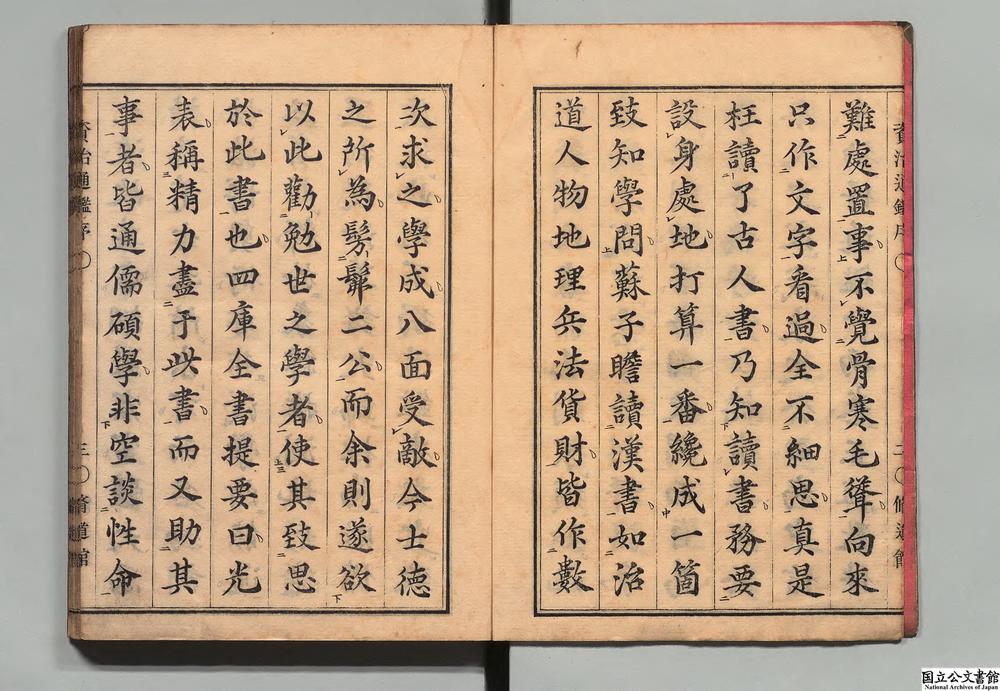 難處置事不覺骨寒毛聳向來
只作文字看過全不細思真是
枉讀了古人書乃知讀書務要
設身處地打算一番纔成一箇
致知學問蘇子瞻讀漢書如治
道人物地理兵法貨財皆作數
次求之學成八面受敵今士德
之所為髣髴二公而余則遂欲
以此勸勉世之學者使其致思
於此書也四庫全書提要曰光
表稱精力盡于此書而又助其
事者皆通儒碩學非空談性命
資治通鑑序
三
脩道館
国立公文書館
National Archives of Japan